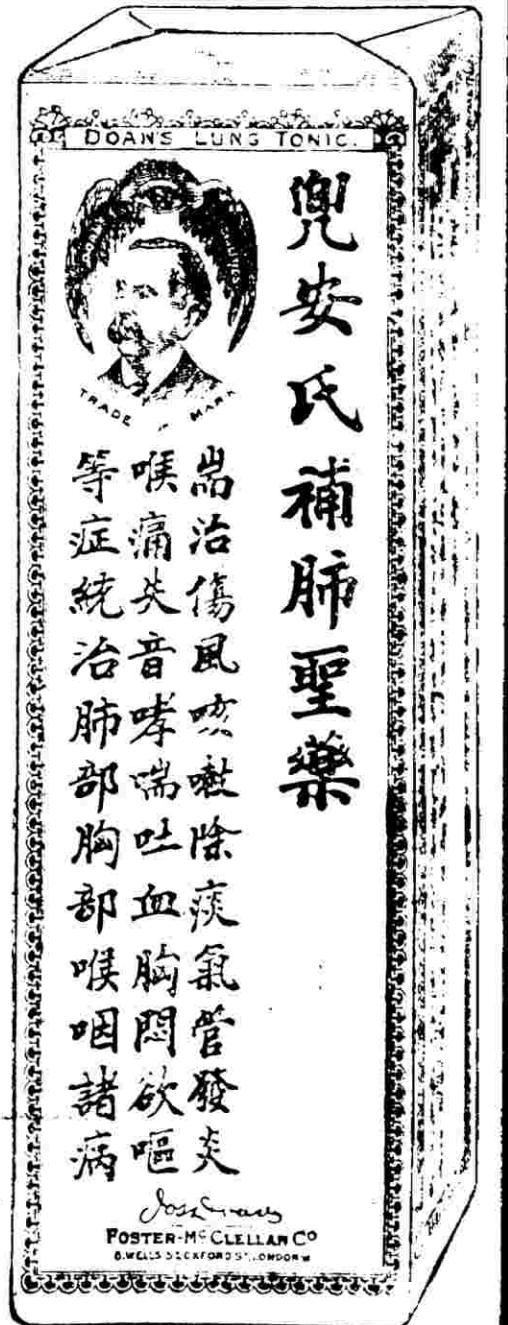 DOAN'S LUNG TONIC.
TRADE MARK
兜安氏補肺聖藥
耑治傷風咳嗽除痰氣管發炎
喉痛失音哮喘吐血胸悶欲嘔
等症統治肺部胸部喉咽諸病
FOSTER-McCLELLAN Co
8. WELLS ST. OXFORD ST. LONDON W